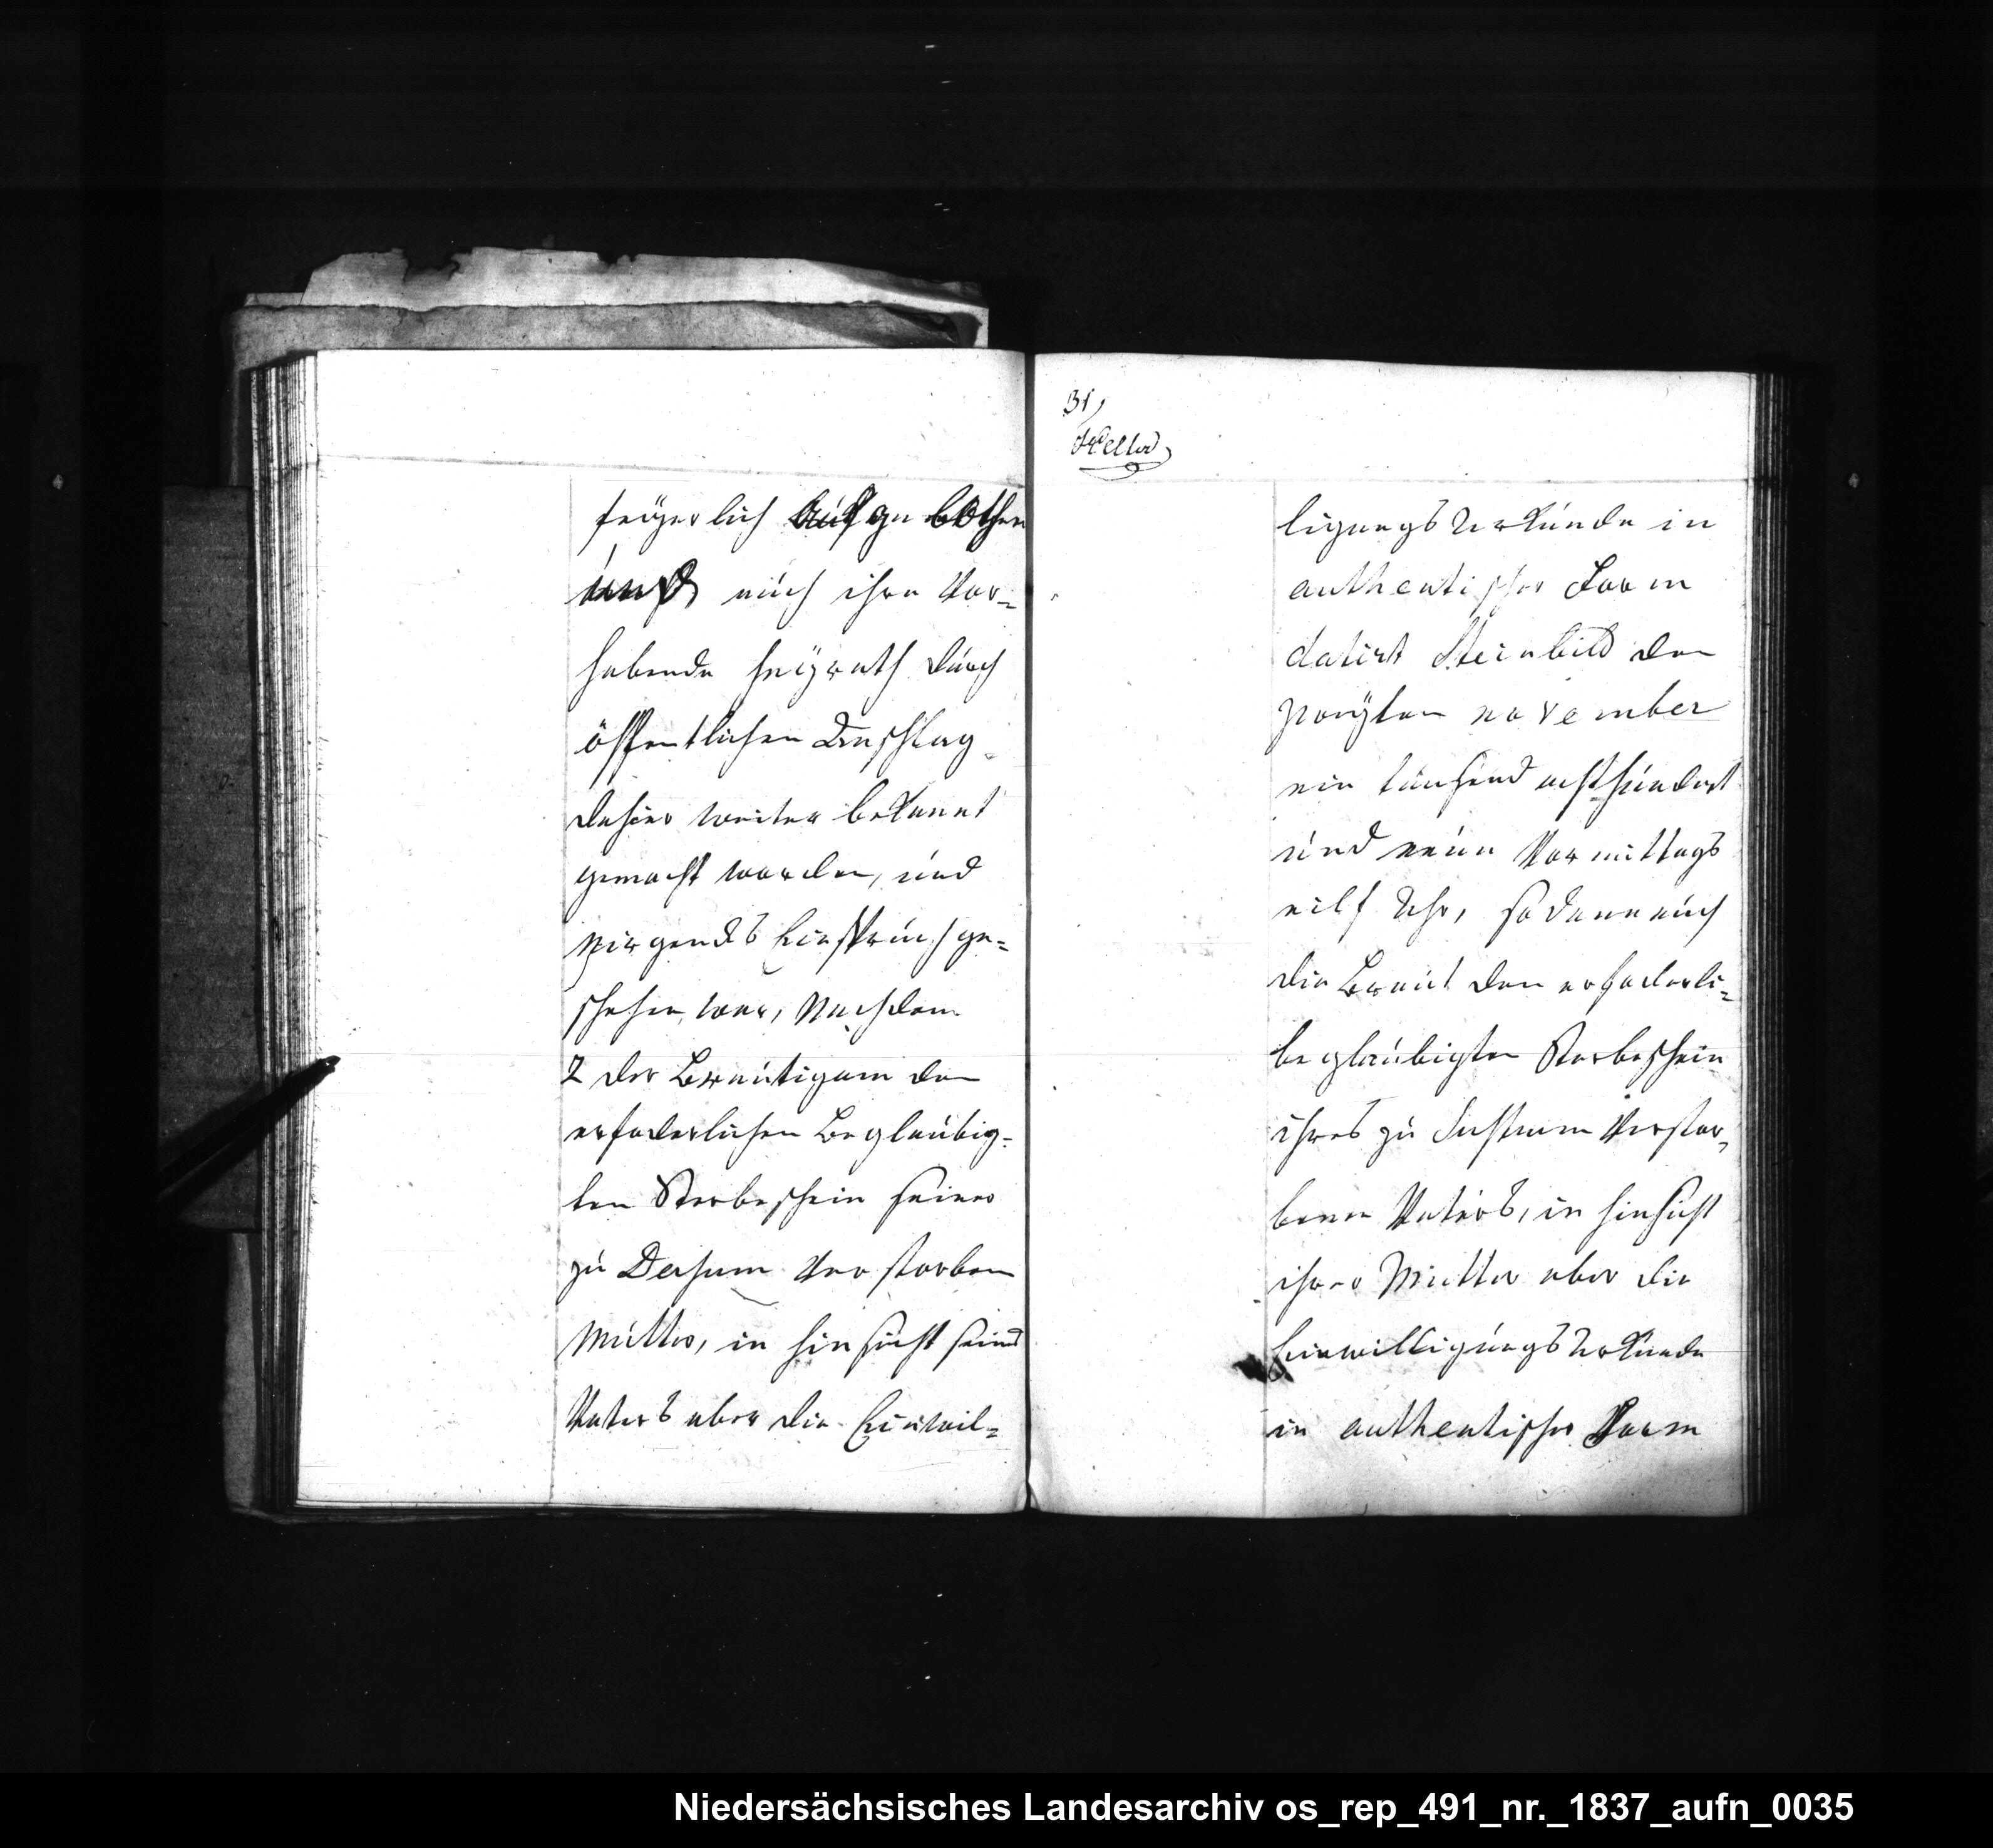 feÿerlich aufgebothen
und auch ihre Vor=
habende heÿrath durch
öffentlichen Anschlag
dahier weiter bekannt
gemacht worden, und
nirgends Einspruch ge=
schehen war, Nachdem
2 der Bräutigam den
erfoderlichen Beglaubig=
ten Sterbeschein seiner
zu Dersum Verstorben
Mutter, in hinsicht seines
Vaters aber die Einwil=
31,
Keller
ligungs Urkunde in
authentischer Form
datirt Steinbild den
november
ein tausend achthundert
und neun Vormittags
eilf Uhr, sodann auch
die Braut den erfoderli=
beglaubigten Sterbeschein
ihres zu Verstor=
benen Vaters, in hinsicht
ihrer Mutter aber die
Einwilligungs Urkunde
in authentischer Form
Niedersächsisches Landesarchiv os_rep_491_nr._1837_aufn_0035